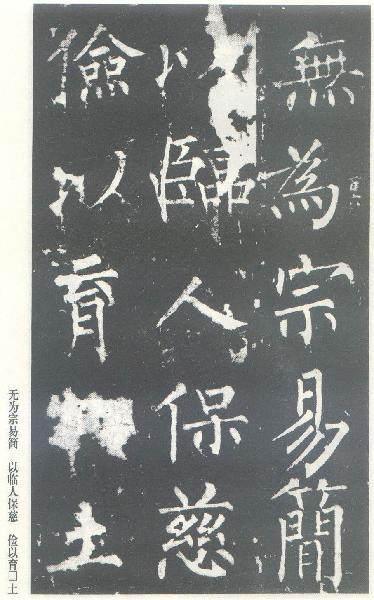 無為宗易簡
以臨人保慈
儉以育土
无为宗易简 以临人保慈 俭以育口土